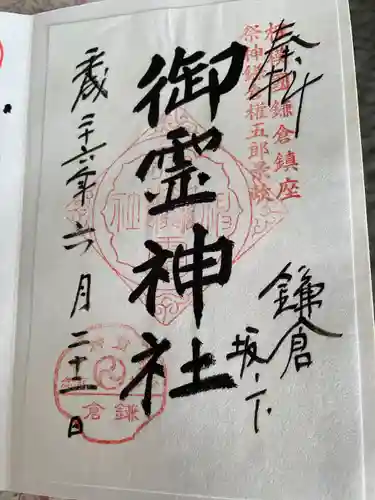 奉拝
相模國鎌倉鎮座
祭神鎌倉權五郎景政
鎌倉
坂ノ下
御霊神社
二十六年六月二十二日
鎌倉